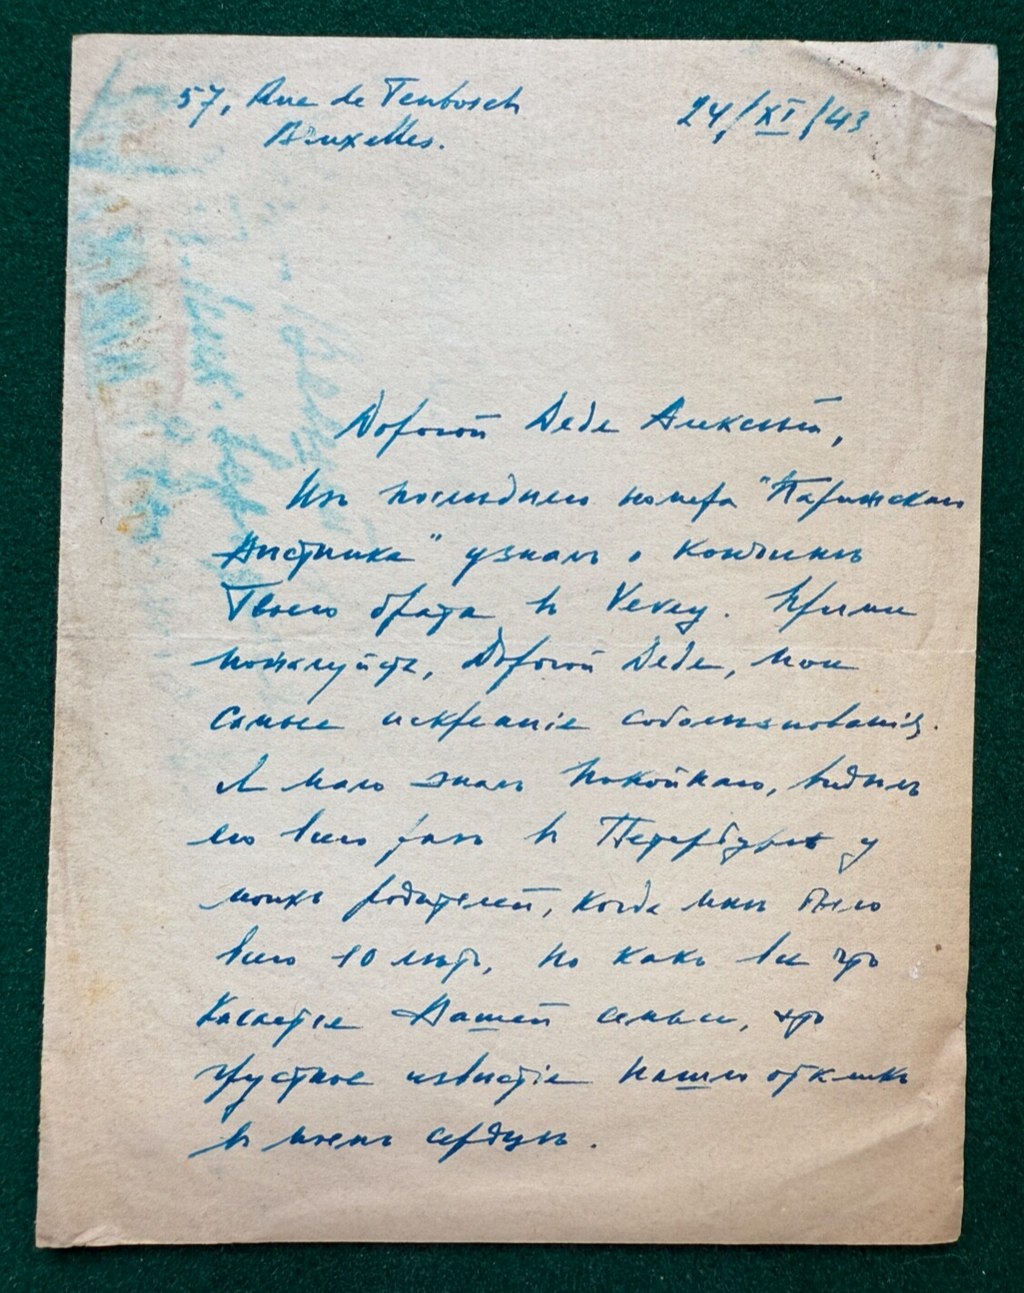 57, Rue de Tenbosch
Bruxelles.
24/XI/43
Дорогой Дядя Алексѣй,
Изъ послѣдняго номера "Парижскаго
Вѣстника" узналъ о кончинѣ
Твоего брата въ Vevey. Прими
пожалуйста, Дорогой Дядя, мои
самые искренніе соболѣзнованія.
Я мало зналъ покойнаго, видѣлъ
его всего разъ въ Петербургѣ у
моихъ родителей, когда мнѣ было
всего 10 лѣтъ, но какъ все что
касается Вашей семьи, это
грустное извѣстіе нашло откликъ
въ моемъ сердцѣ.